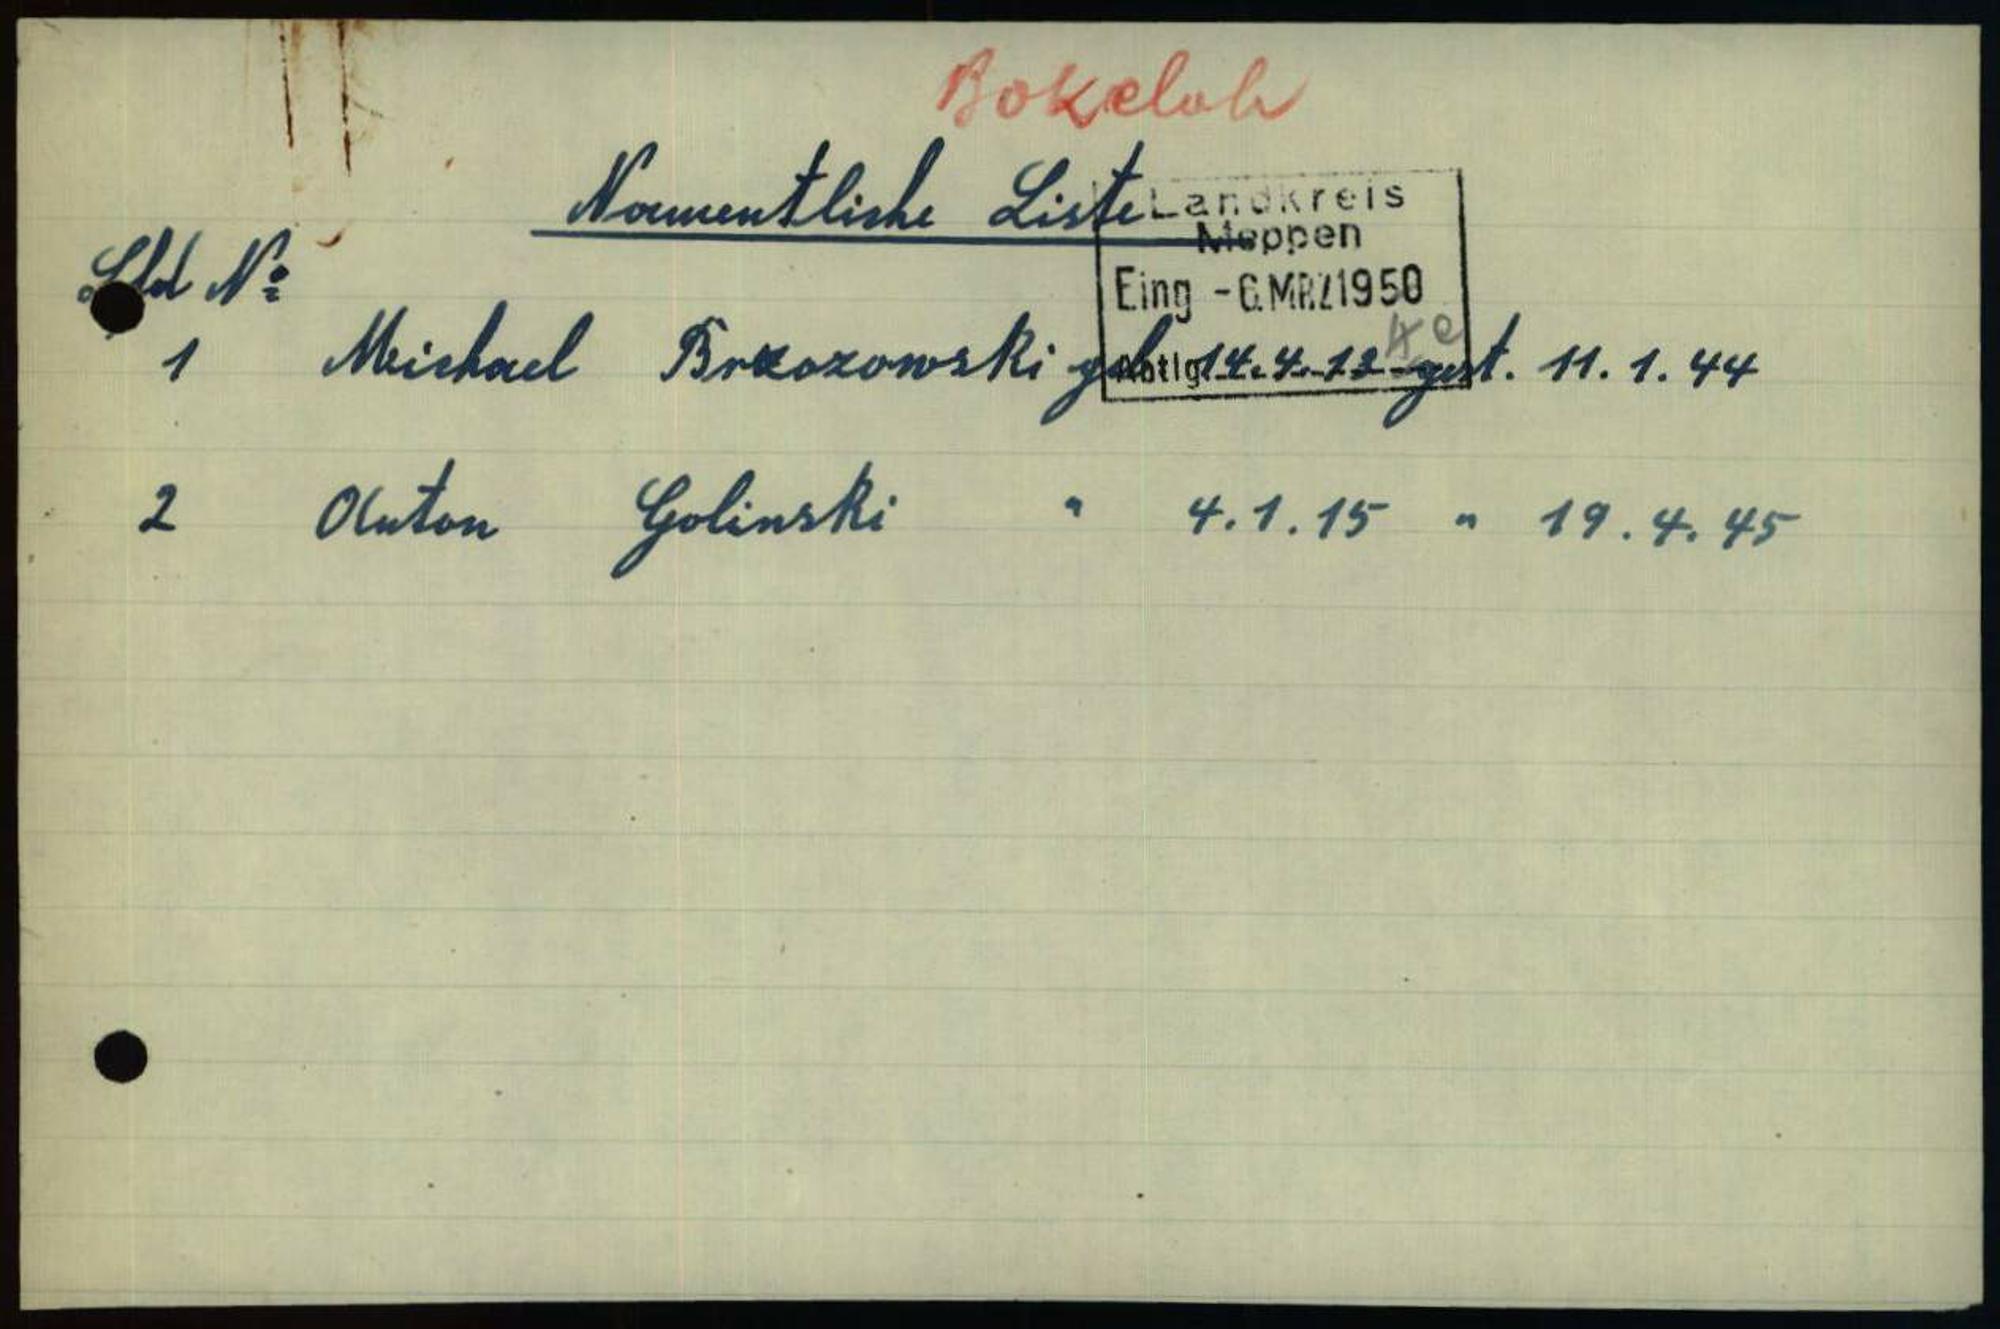 Bokeloh
Namentliche Liste
Landkreis
Meppen
Eing - 6. MRZ 1950
Abtlg.
Lfd Nº
1 Michael Brzozowski geb 14.4.12 gest. 11.1.44
2 Anton Golinski " 4.1.15 " 19.4.45